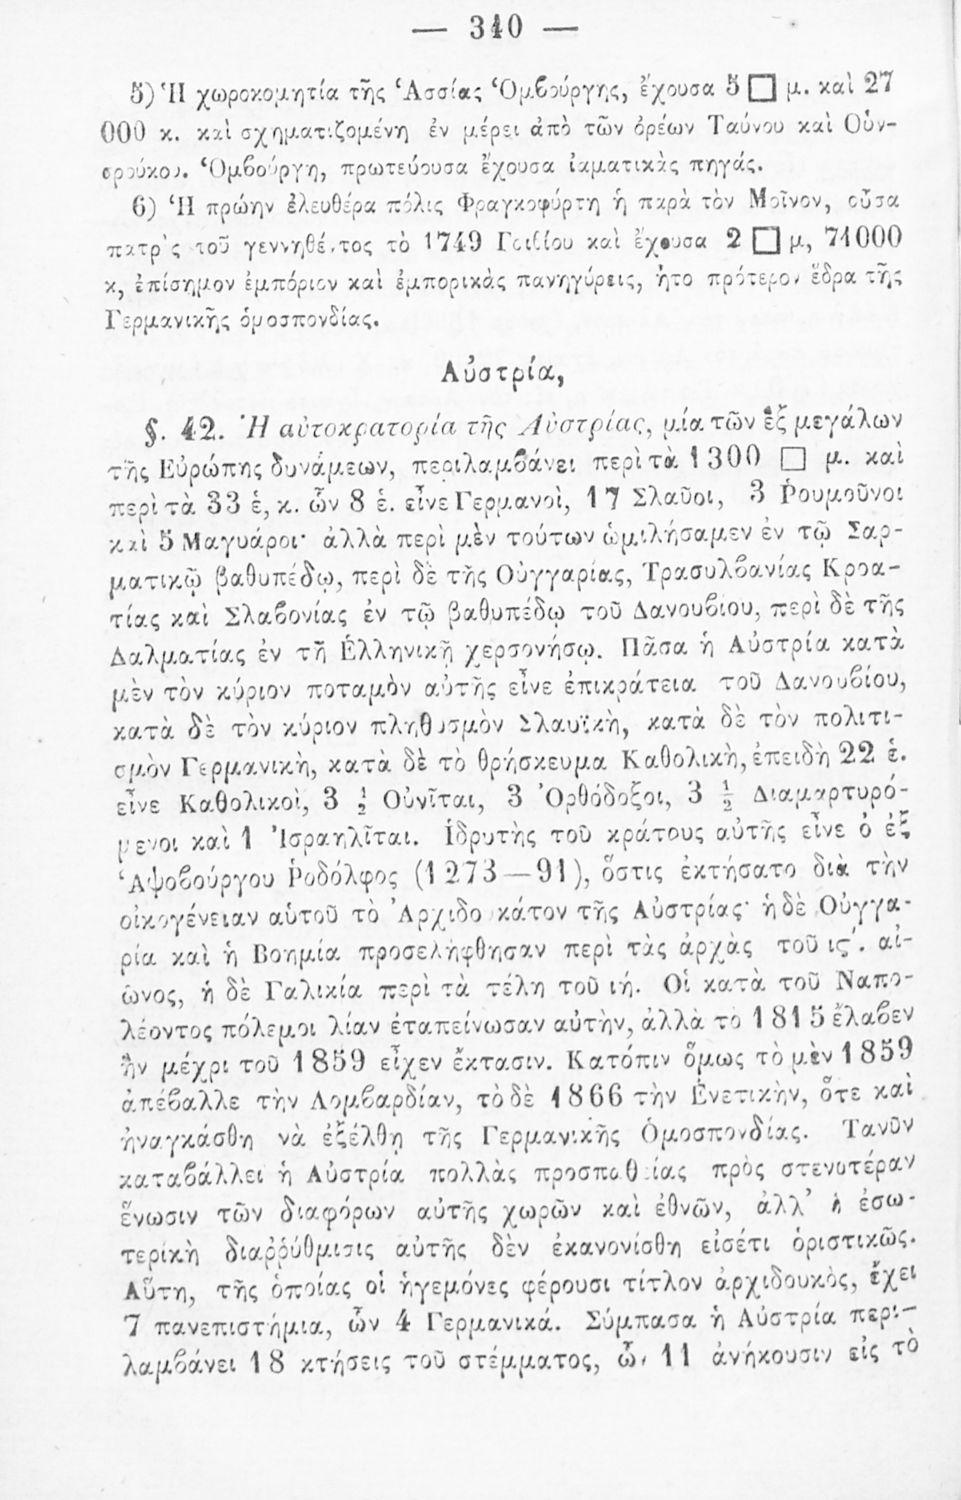 — 340 —
5) Ἡ χωροκομητία τῆς Ἁσσίας Ὁμβούργης, ἔχουσα 5 □ μ. καὶ 27
000 κ. καὶ σχηματιζομένη ἐν μέρει ἀπὸ τῶν ὀρέων Ταύνου καὶ Οὑν-
σρούκου. Ὁμβούργη, πρωτεύουσα ἔχουσα ἰαματικὰς πηγάς.
6) Ἡ πρώην ἐλευθέρα πόλις Φραγκοφύρτη ἡ παρὰ τὸν Μοῖνον, οὖσα
πατρὶς τοῦ γεννηθέντος τὸ 1749 Γοιθίου καὶ ἔχουσα 2 □ μ, 71000
κ, ἐπίσημον ἐμπόριον καὶ ἐμπορικὰς πανηγύρεις, ἦτο πρότερον ἕδρα τῆς
Γερμανικῆς ὁμοσπονδίας.
Αὐστρία,
§. 42. Ἡ αὐτοκρατορία τῆς Αὐστρίας, μία τῶν ἓξ μεγάλων
τῆς Εὐρώπης δυνάμεων, περιλαμβάνει περὶ τὰ 1300 □ μ. καὶ
περὶ τὰ 33 ἑ, κ. ὧν 8 ἑ. εἶνε Γερμανοὶ, 17 Σλαῦοι, 3 Ῥουμοῦνοι
καὶ 5 Μαγυάροι· ἀλλὰ περὶ μὲν τούτων ὡμιλήσαμεν ἐν τῷ Σαρ-
ματικῷ βαθυπέδῳ, περὶ δὲ τῆς Οὐγγαρίας, Τρασυλβανίας Κροα-
τίας καὶ Σλαβονίας ἐν τῷ βαθυπέδῳ τοῦ Δανουβίου, περὶ δὲ τῆς
Δαλματίας ἐν τῇ Ἑλληνικῇ χερσονήσῳ. Πᾶσα ἡ Αὐστρία κατὰ
μὲν τὸν κύριον ποταμὸν αὐτῆς εἶνε ἐπικράτεια τοῦ Δανουβίου,
κατὰ δὲ τὸν κύριον πληθυσμὸν Σλαυϊκὴ, κατὰ δὲ τὸν πολιτι-
σμὸν Γερμανικὴ, κατὰ δὲ τὸ θρήσκευμα Καθολικὴ, ἐπειδὴ 22 ἑ.
εἶνε Καθολικοὶ, 3 ½ Οὐνῖται, 3 Ὀρθόδοξοι, 3 ½ Διαμαρτυρό-
μενοι καὶ 1 Ἰσραηλῖται. Ἱδρυτὴς τοῦ κράτους αὐτῆς εἶνε ὁ ἐξ
Ἁψοβούργου Ῥοδόλφος (1273—91), ὅστις ἐκτήσατο διὰ τὴν
οἰκογένειαν αὑτοῦ τὸ Ἀρχιδουκάτον τῆς Αὐστρίας· ἡ δὲ Οὐγγα-
ρία καὶ ἡ Βοημία προσελήφθησαν περὶ τὰς ἀρχὰς τοῦ ις΄. αἰ-
ῶνος, ἡ δὲ Γαλικία περὶ τὰ τέλη τοῦ ιή. Οἱ κατὰ τοῦ Ναπο-
λέοντος πόλεμοι λίαν ἐταπείνωσαν αὐτὴν, ἀλλὰ τὸ 1815 ἔλαβεν
ἣν μέχρι τοῦ 1859 εἶχεν ἔκτασιν. Κατόπιν ὅμως τὸ μὲν 1859
ἀπέβαλλε τὴν Λομβαρδίαν, τὸ δὲ 1866 τὴν Ἑνετικὴν, ὅτε καὶ
ἠναγκάσθη νὰ ἐξέλθῃ τῆς Γερμανικῆς Ὁμοσπονδίας. Τανῦν
καταβάλλει ἡ Αὐστρία πολλὰς προσπαθείας πρὸς στενωτέραν
ἕνωσιν τῶν διαφόρων αὐτῆς χωρῶν καὶ ἐθνῶν, ἀλλ᾽ ἡ ἐσω-
τερικὴ διαῤῥύθμισις αὐτῆς δὲν ἐκανονίσθη εἰσέτι ὁριστικῶς.
Αὕτη, τῆς ὁποίας οἱ ἡγεμόνες φέρουσι τίτλον ἀρχιδουκὸς, ἔχει
7 πανεπιστήμια, ὧν 4 Γερμανικά. Σύμπασα ἡ Αὐστρία περι-
λαμβάνει 18 κτήσεις τοῦ στέμματος, ὧν 11 ἀνήκουσιν εἰς τὸ